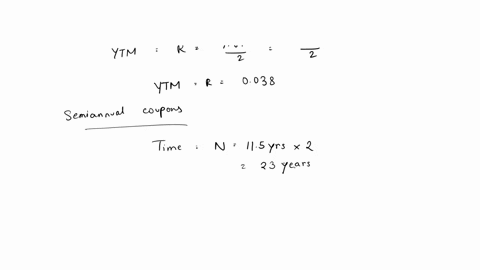 YTM : K = /2 = /2
YTM = R = 0.038
Semiannual coupons
Time : N = 11.5 yrs × 2
= 23 years